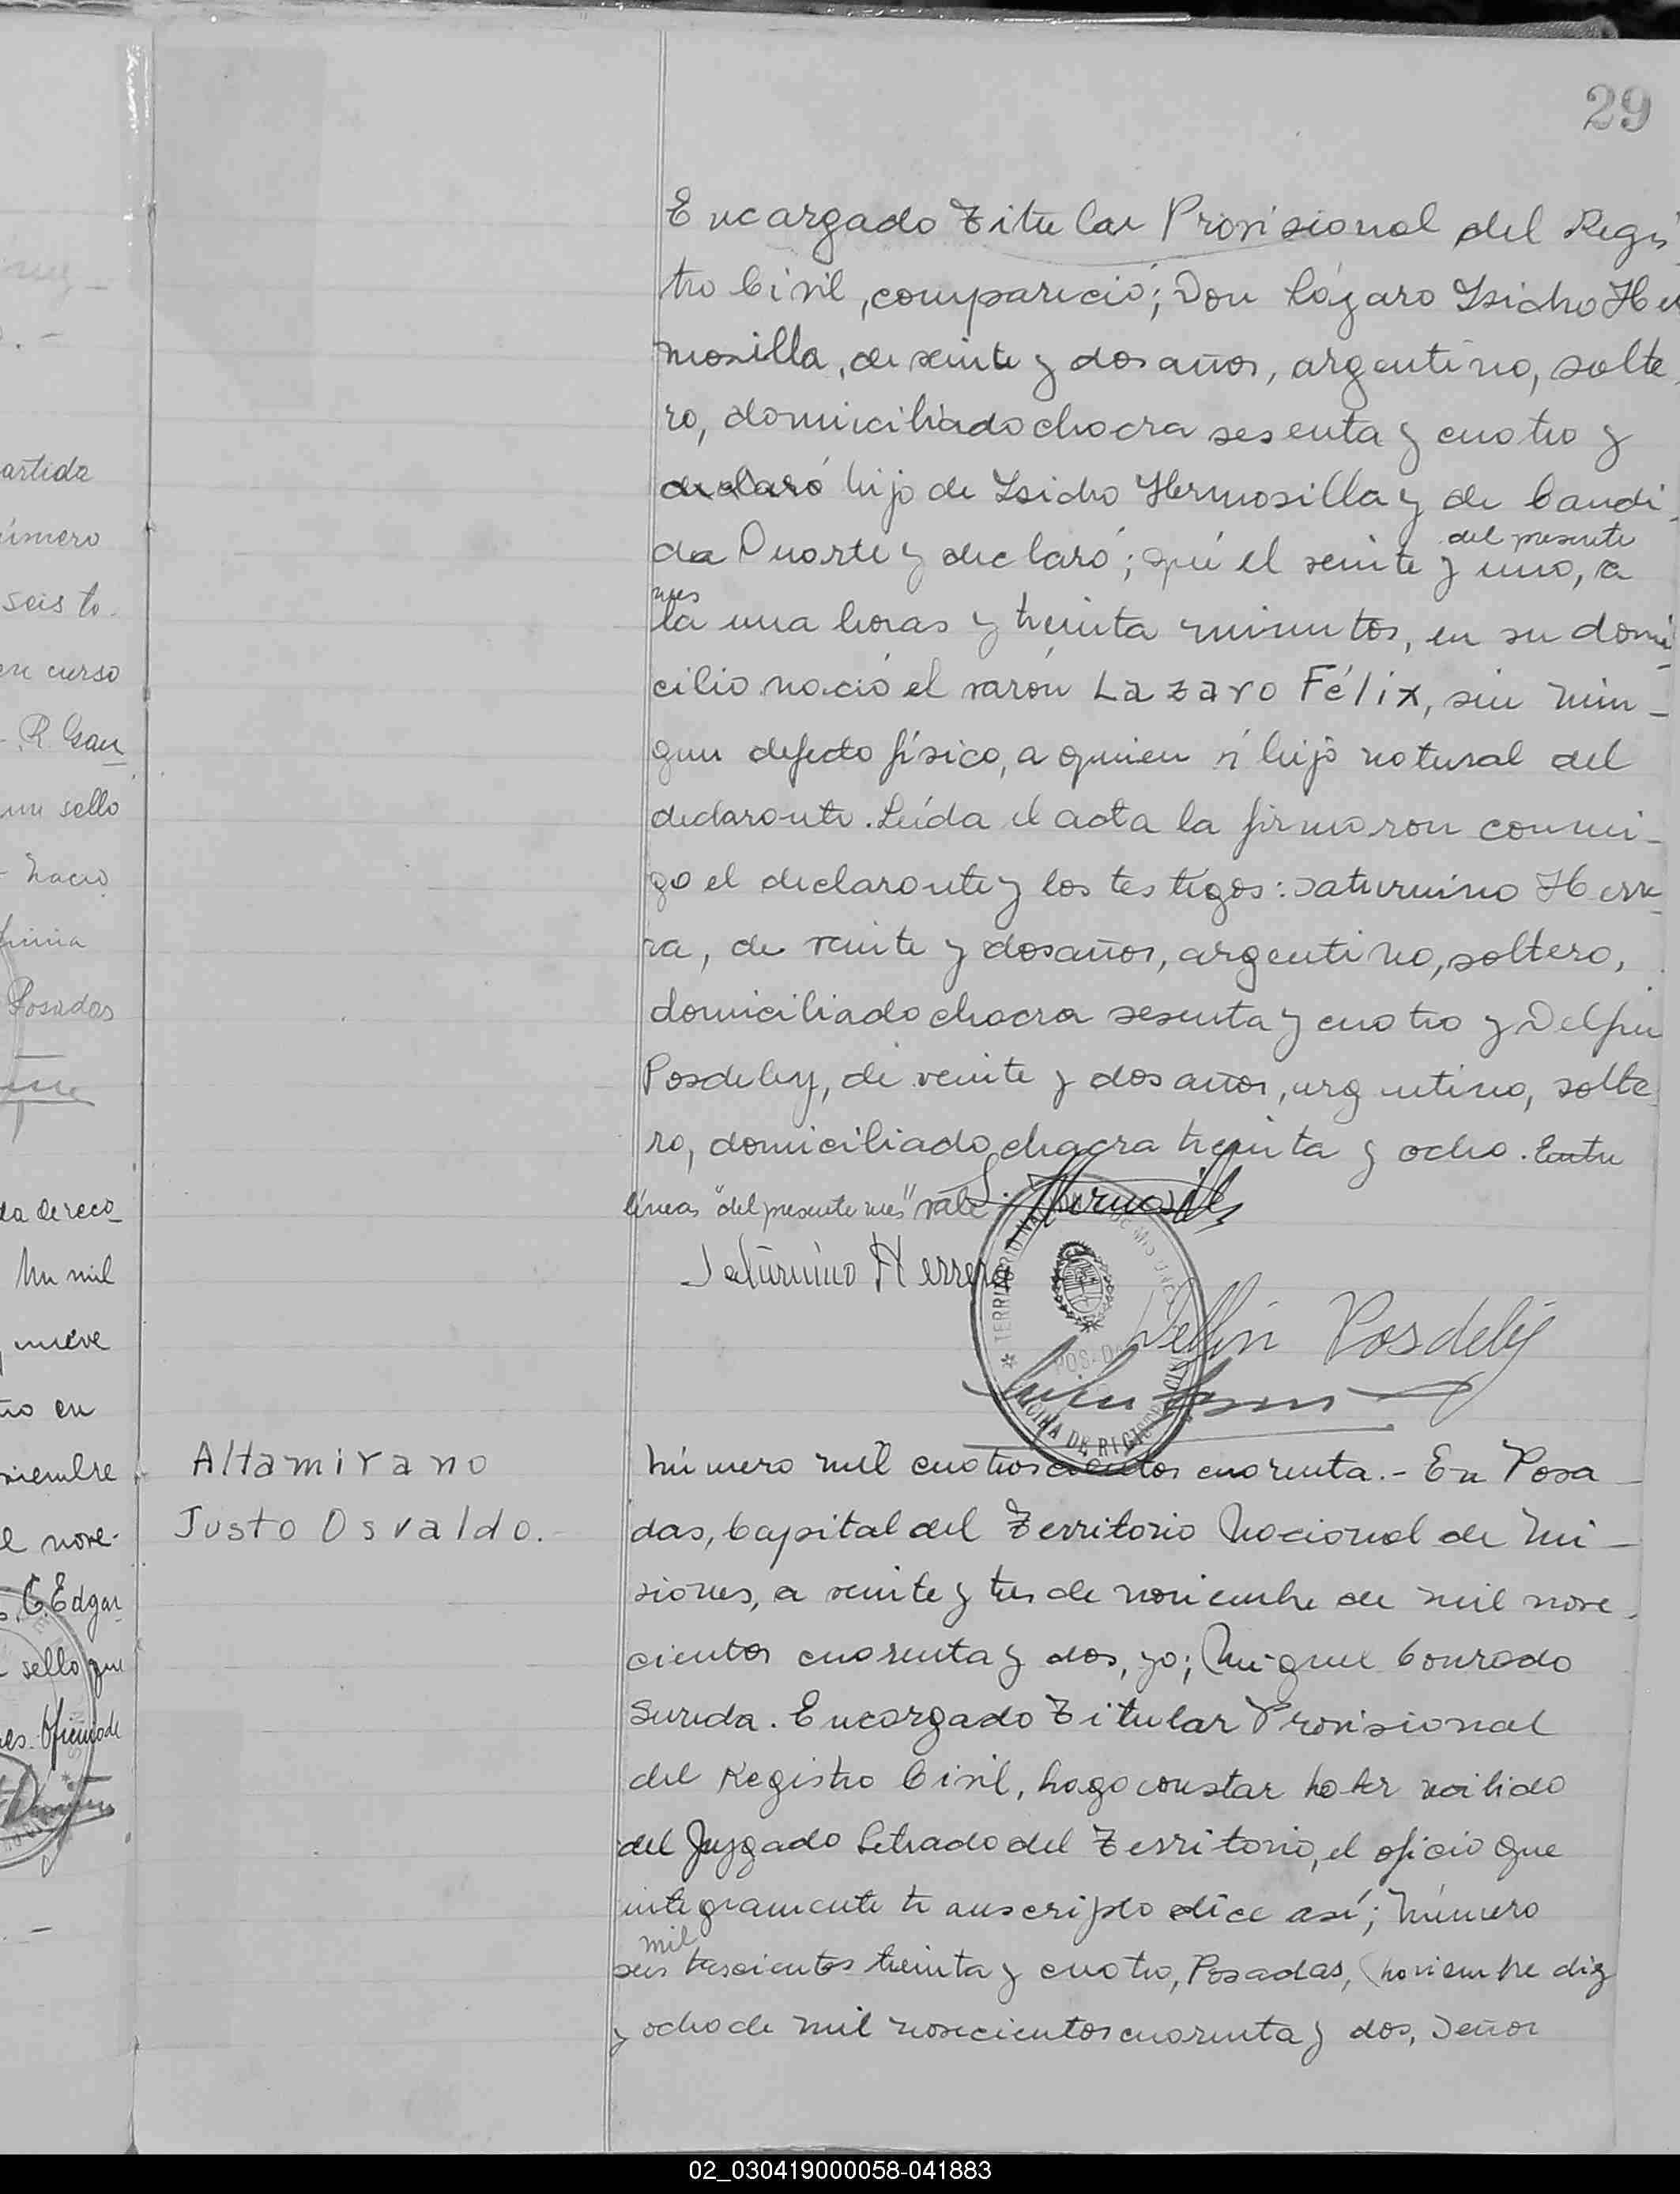 29
Encargado Titular Provisional del Regis
tro Civil, compareció; Don Lázaro Isidro Her
mosilla, de veinte y dos años, argentino, solte
ro, domiciliado chacra sesenta y cuatro y
declaró hijo de Isidro Hermosilla y de Candi
del presente
da Duarte y declaró; que el veinte y uno, a
mes
la una horas y treinta minutos, en su domi
cilio nació el varón Lazaro Félix, sin nin-
gun defecto físico, a quien hijo natural del
declarante. Leída el acta la firmaron conmi-
go el declarante y los testigos: Saturnino Herre
ra, de veinte y dos años, argentino, soltero,
domiciliado chacra sesenta y cuatro y Delfin
Posdeley, de veinte y dos años, argentino, solte
ro, domiciliado chacra treinta y ocho. Entre
líneas "del presente mes" vale.
Saturnino Herrera
Delfin Posdeley
TERRITORIO NA DE MISIONES
POSADAS
OFICINA DE REGISTRO CIVIL
Altamirano
Justo Osvaldo.
Número mil cuatroscientos cuarenta.- En Posa
das, Capital del Territorio Nacional de Mi-
siones, a veinte y tres de noviembre de mil nove
cientos cuarenta y dos, yo; Miguel Conrado
Sureda. Encargado Titular Provisional
del Registro Civil, hago constar haber recibido
del Juzgado Letrado del Territorio, el oficio que
integramente transcripto dice así; Número
mil
seis trescientos treinta y cuatro, Posadas, noviembre diez
y ocho de mil novecientos cuarenta y dos, Señor
artida
úmero
seis to
en curso
un sello
nació
Posadas
da de reco
un mil
nueve
en
viembre
nove-
C. Edgar
sello que
Oficina de
02_030419000058-041883